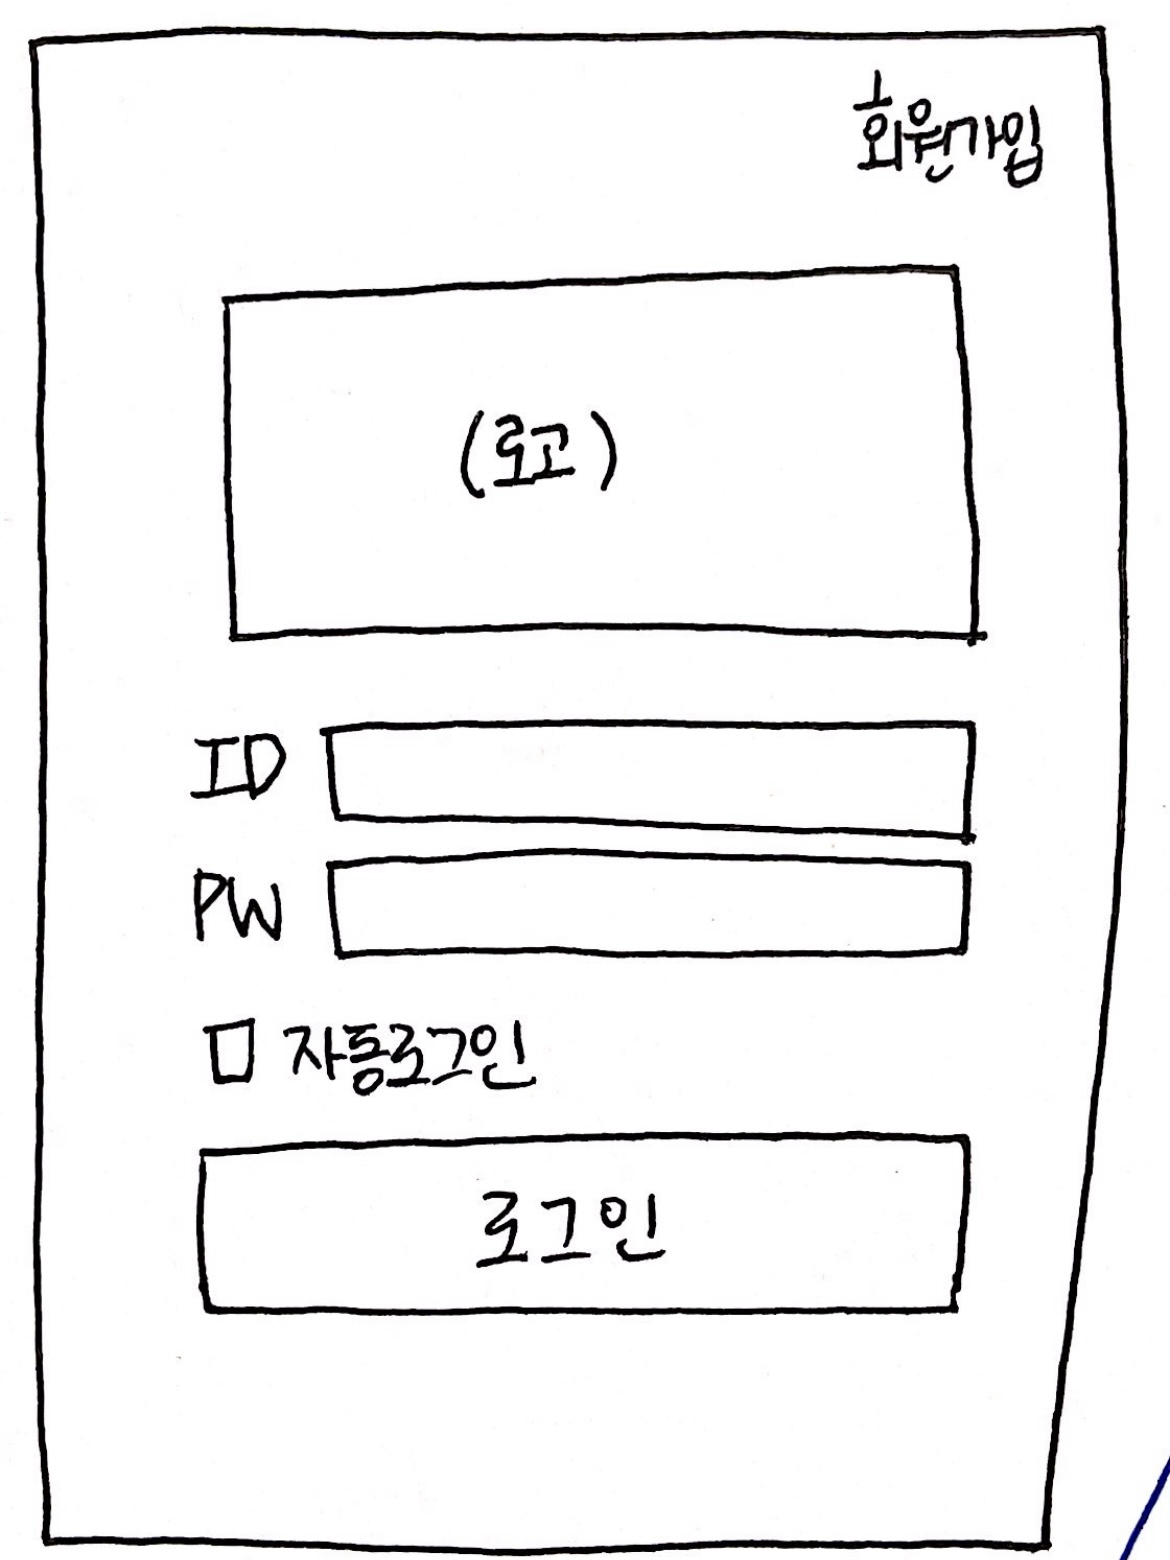 회원가입
(로고)
ID
PW
자동로그인
로그인